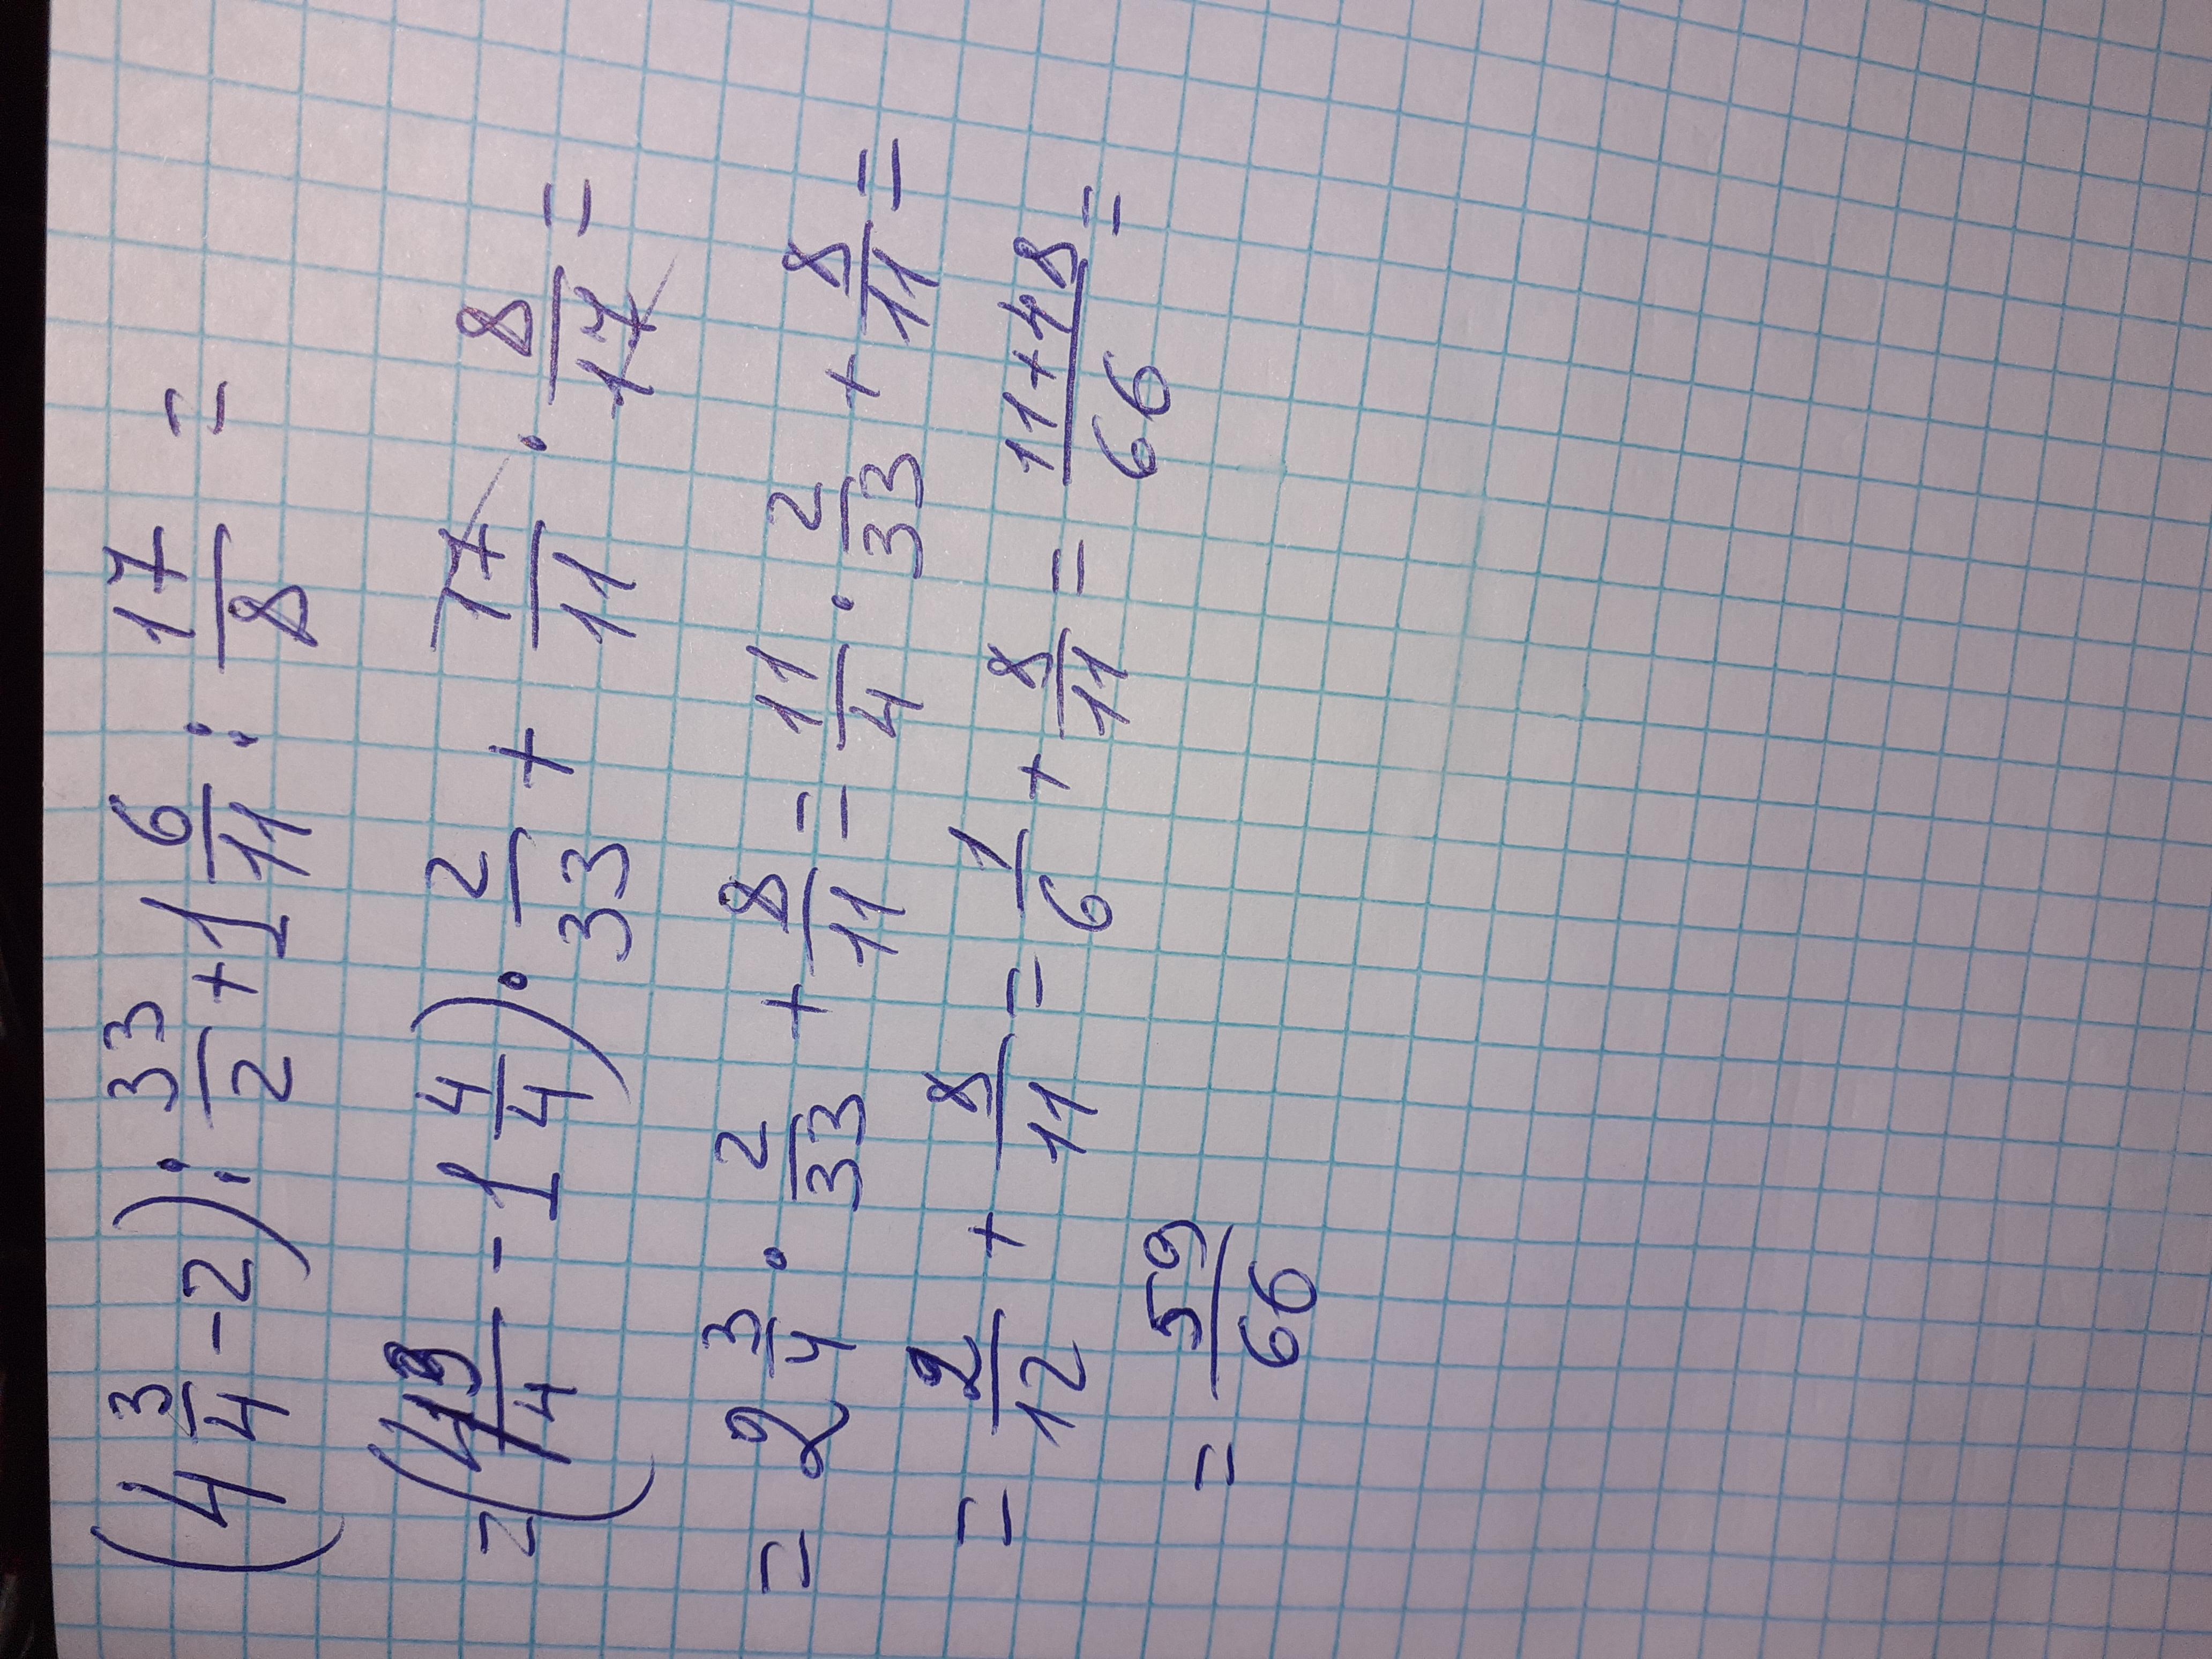 (4 3/4 - 2) : 33/2 + 1 6/11 : 17/8 =
= ( 3/4 - 1 4/4) · 2/33 + 17/11 · 8/17 =
= 2 3/4 · 2/33 + 8/11 = 11/4 · 2/33 + 8/11 =
= 2/12 + 8/11 = 1/6 + 8/11 = 11+48/66 =
= 59/66